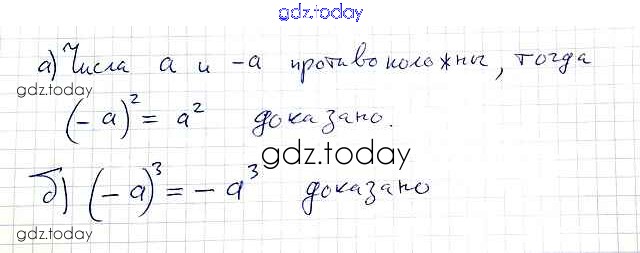 gdz.today
а) Числа a и -a противоположны, тогда
gdz.today
(-a)² = a² доказано.
gdz.today
б) (-a)³ = -a³ доказано
gdz.today